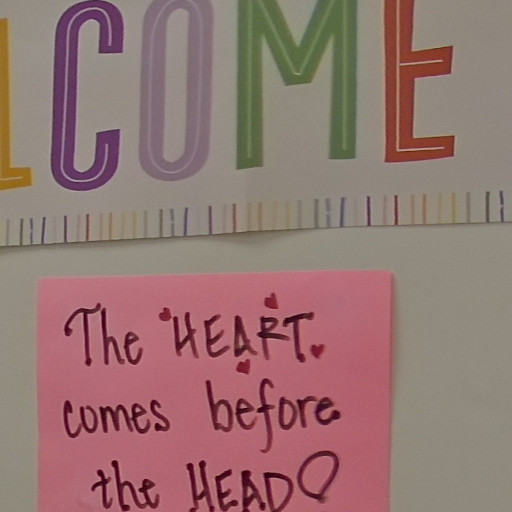 LCOME
The HEART
comes before
the HEAD